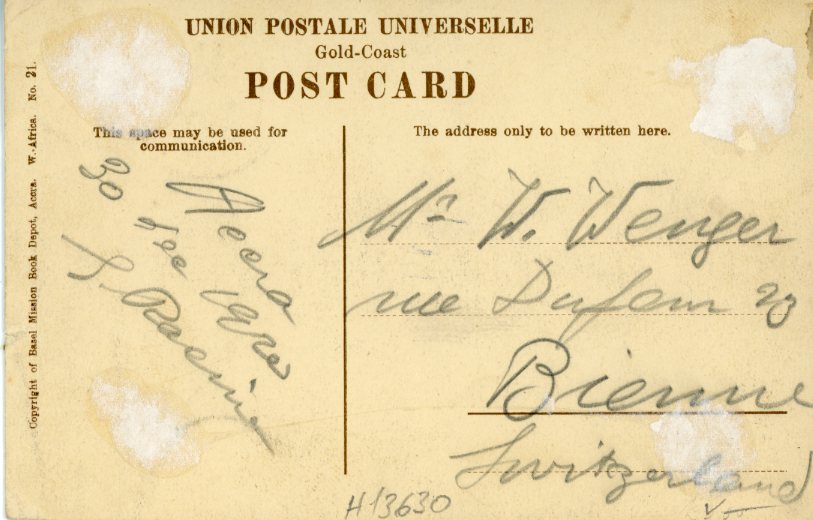 UNION POSTALE UNIVERSELLE
Gold-Coast
POST CARD
This space may be used for
communication.
The address only to be written here.
Copyright of Basel Mission Book Depot, Accra. W. Africa. No. 21.
Accra
30 dec 1920
S. Racine
Mr W. Wenger
rue Dufour 23
Bienne
Switzerland
H13630